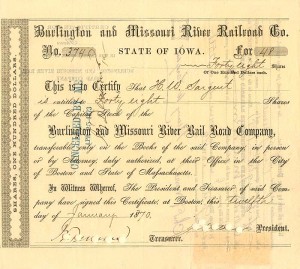 Burlington and Missouri River Railroad Co.
No. 3740 STATE OF IOWA. For 48
Forty eight Shares
Of One Hundred Dollars each.
This is to Certify That H. W. Sargent
is entitled to Forty eight Shares
of the Capital Stock of the
Burlington and Missouri River Rail Road Company,
transferable only in the Books of the said Company, in person
or by Attorney, duly authorized, at their Office in the City
of Boston and State of Massachusetts.
In Witness Whereof, The President and Treasurer of said Com
pany have signed this Certificate, at Boston, this twelfth
day of January 1870.
President.
Treasurer.
SHARES, ONE HUNDRED DOLLARS.
CANCELLED